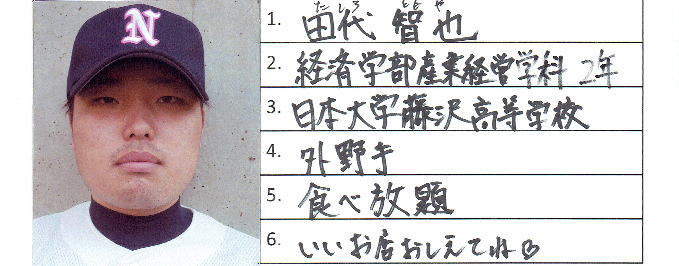 N
たしろ ともや
1. 田代 智也
2. 経済学部産業経営学科 2年
3. 日本大学藤沢高等学校
4. 外野手
5. 食べ放題
6. いいお店おしえてね♡